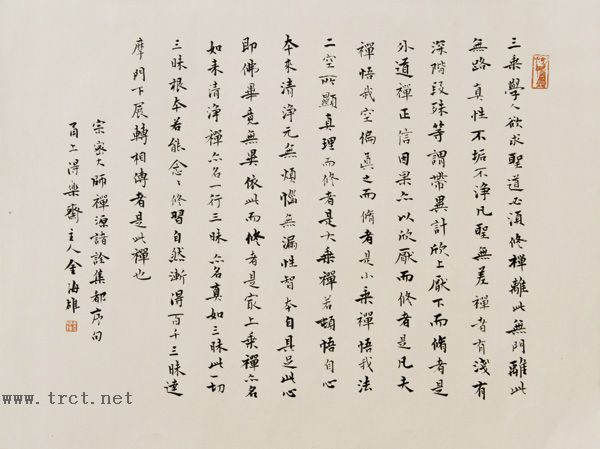 三乘學人欲求聖道必須修禪離此無門離此
無路真性不垢不淨凡聖無差禪者有淺有
深階段殊等謂帶異計欣上厭下而脩者是
外道禪正信因果亦以欣厭而修者是凡夫
禪悟我空偏真之而脩者是小乘禪悟我法
二空所顯真理而修者是大乘禪若頓悟自心
本來清淨元無煩惱無漏性智本自具足此心
即佛畢竟無異依此而修者是㝡上乘禪亦名
如来清淨禪亦名一行三昧亦名真如三昧此一切
三昧根本若能念〻修習自然漸得百千三昧達
摩門下展轉相傳者是此禪也
宗密大師禪源諸詮集都序句
甬上得樂齋主人金海雄
www.trct.net